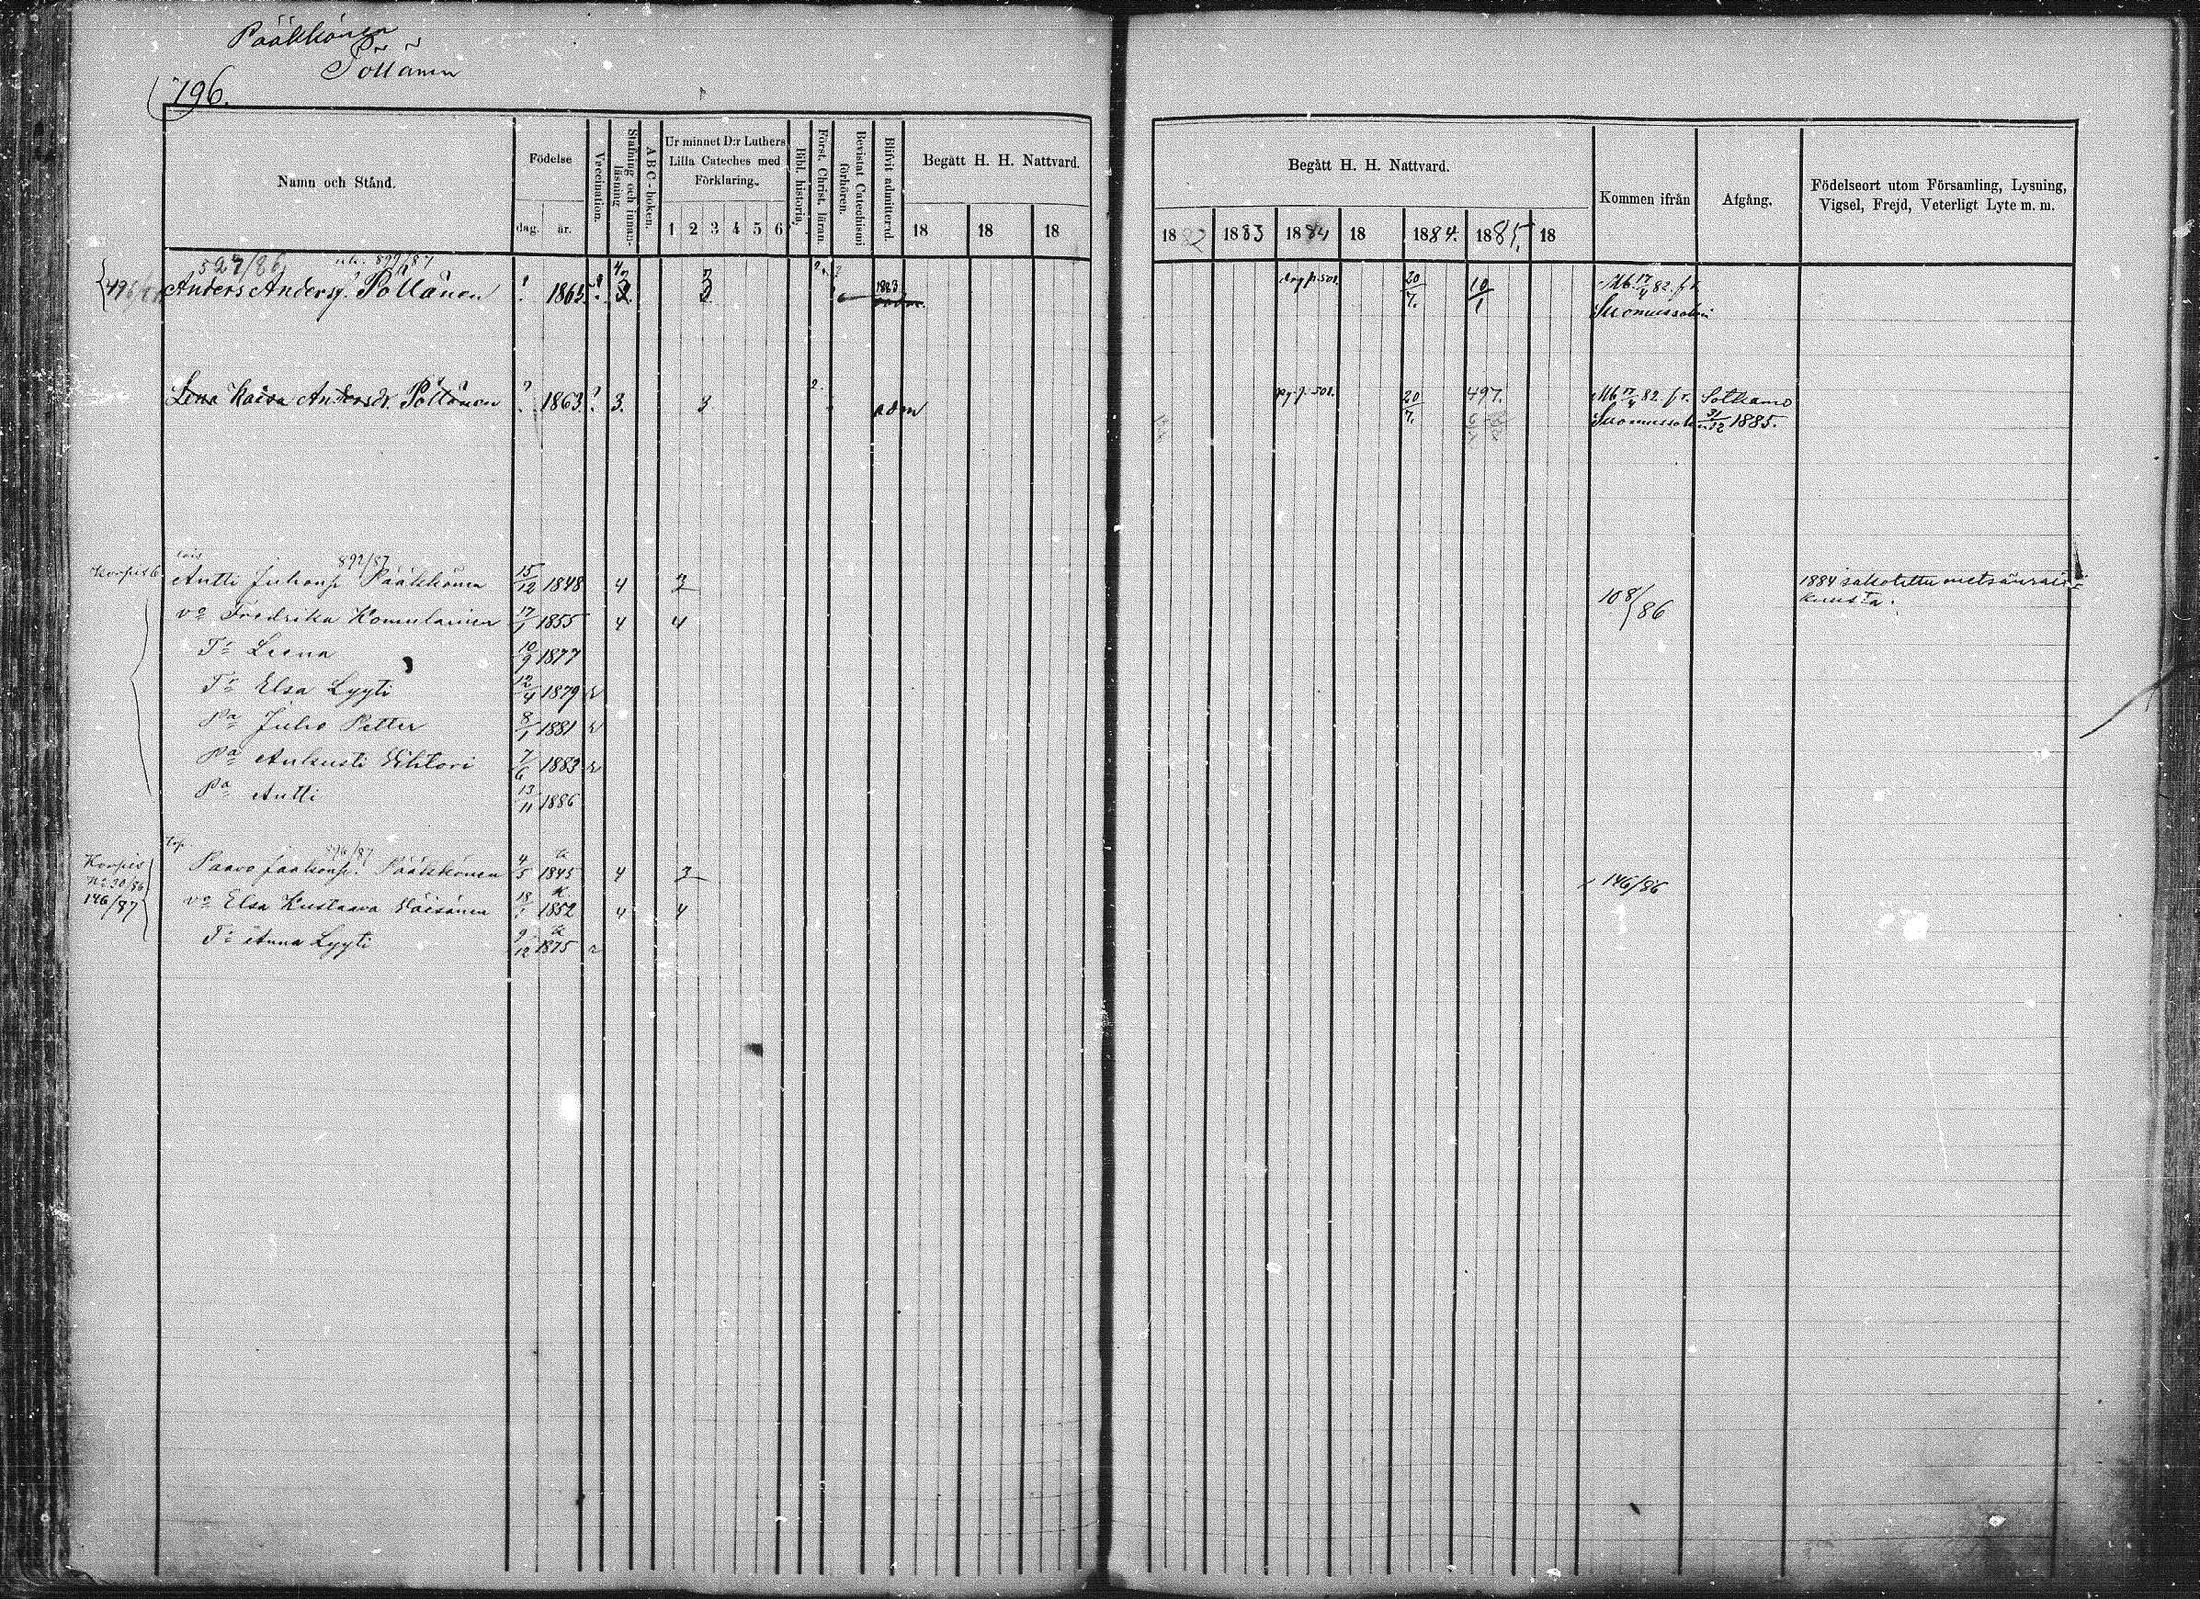 Pääkkönen
Pöllänen
796.
Namn och Stånd.
Födelse
dag. år.
Vaccination.
Stafning och innan-läsning
ABC-boken.
Ur minnet D:r Luthers
Lilla Cateches med
Förklaring.
1 2 3 4 5 6
Bibl. historia.
Först. Christ. läran.
Bevistat Catechismi förhören.
Blifvit admitterad.
Begått H. H. Nattvard.
18 18 18
Begått H. H. Nattvard.
1882 1883 1884 18 1884. 1885. 18
Kommen ifrån
Afgång.
Födelseort utom Församling, Lysning,
Vigsel, Frejd, Veterligt Lyte m. m.
527/86 899/87
Anders Andersp. Pöllänen ? 1865 ? 1883 20/7. 10/1 Mb 17/4 82. fr.
Suomussalmi
Lena Kaisa Andersdr. Pöllänen ? 1863 ? 3. 3 2. adm 20/7. 497. Mb 17/4 82. fr. Sotkamo
Suomussalmi 31/12 1885.
lois 892/87
Antti Juhonp Pääkkönen 15/12 1848 4 2 108/86 1884 sakotettu metsänrais-
kuusta.
vo Fredrika Komulainen 17/1 1855 4 4
Tr Leena 10/9 1877
Tr Elsa Lyyti 12/4 1879 r
Pa Juho Petter 8/1 1881 r
Pa Aukusti Vihtori 7/6 1883 r
Pa Antti 13/11 1886
Korpis
No 30/86
146/87
896/87
Paavo Jaakonp. Pääkkönen 4/5 1845 4 3 146/86
vo Elsa Kustaava Väisänen 18/? 1852 4 4
Tr Anna Lyyti 9/12 1875 r